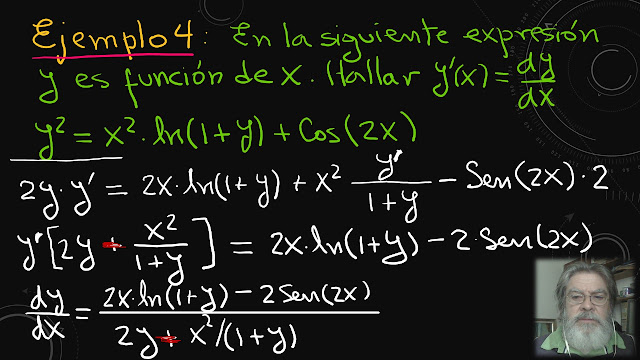 Ejemplo 4: En la siguiente expresión
y es función de x. Hallar y'(x) = dy/dx
y² = x²·ln(1+y) + Cos(2x)
2y·y' = 2x·ln(1+y) + x² y'/(1+y) - Sen(2x)·2
y'[2y - x²/(1+y)] = 2x·ln(1+y) - 2 Sen(2x)
dy/dx = (2x·ln(1+y) - 2 Sen(2x))/(2y - x²/(1+y))